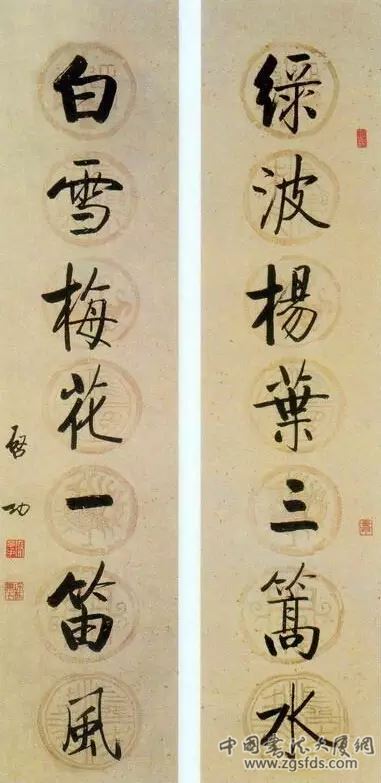 綠波楊葉三篙水
白雪梅花一笛風
啓功
中国书法大厦网
www.zgsfds.com